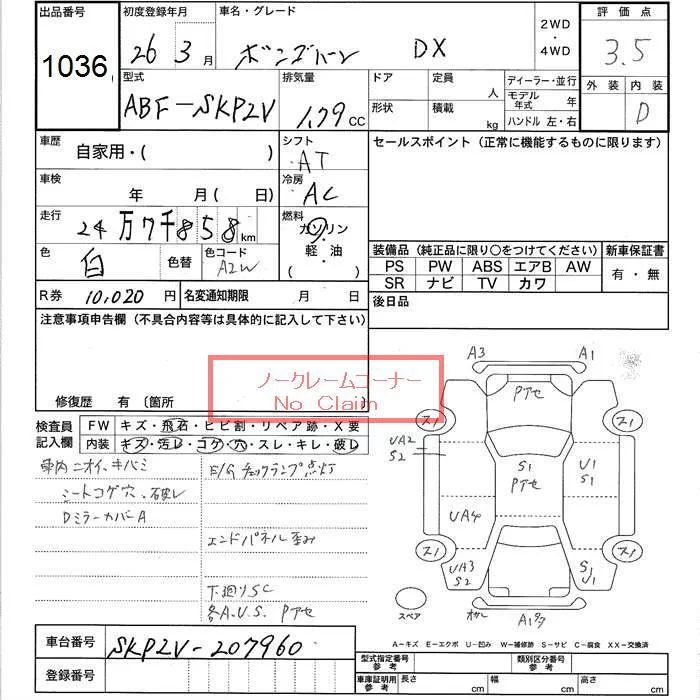 出品番号 初度登録年月 車名・グレード 2WD ・ 4WD 評価点
1036 26年 3月 ボンゴバン DX 3.5
型式 排気量 ドア 定員 人 ディーラー・並行 外装 内装
ABF-SKP2V 1.79 CC 形状 積載 kg モデル年式 年 D
ハンドル 左・右
車歴 自家用・( ) シフト AT セールスポイント (正常に機能するものに限ります)
車検 年 月 ( 日) 冷房 AC
走行 24万7千858km 燃料 ガソリン・軽・油 ( )
色 白 色替 色コード A2W
装備品 (純正品に限り○をつけてください) 新車保証書
PS PW ABS エアB AW 有・無
SR ナビ TV カワ
R券 10,020円 名変通知期限 月 日 後日品
注意事項申告欄 (不具合内容等は具体的に記入して下さい)
ノークレームコーナー
No Claim
修復歴 有 〔箇所 〕
検査員記入欄 FW キズ・飛石・ヒビ割・リペア跡・X要
内装 キズ・汚レ・コゲ・穴・スレ・キレ・破レ
車内ニオイ、キバミ E/Gチェックランプ点灯
シートコゲ穴、破レ
DミラーカバーA
エンドパネル歪み
下廻りSC
各A.U.S. Pアセ
A3 A1
Pアセ
スノ スノ
UA2
S2
S1
Pアセ
U1
S1
UA4
スノ スノ
UA3
S2
S1
U1
スペア
A-キズ E-エクボ U-凹み W-補修跡 S-サビ C-腐食 XX-交換済
車台番号 SKP2V-207960
登録番号
型式指定番号 参考 類別区分番号 参考
車庫証明用 参考 長さ cm 幅 cm 高さ cm